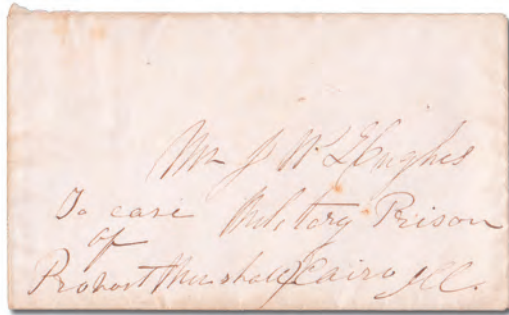 Mr J W Hughes
To care Miletary Prison
of
Provost Marshall Cairo Ill.